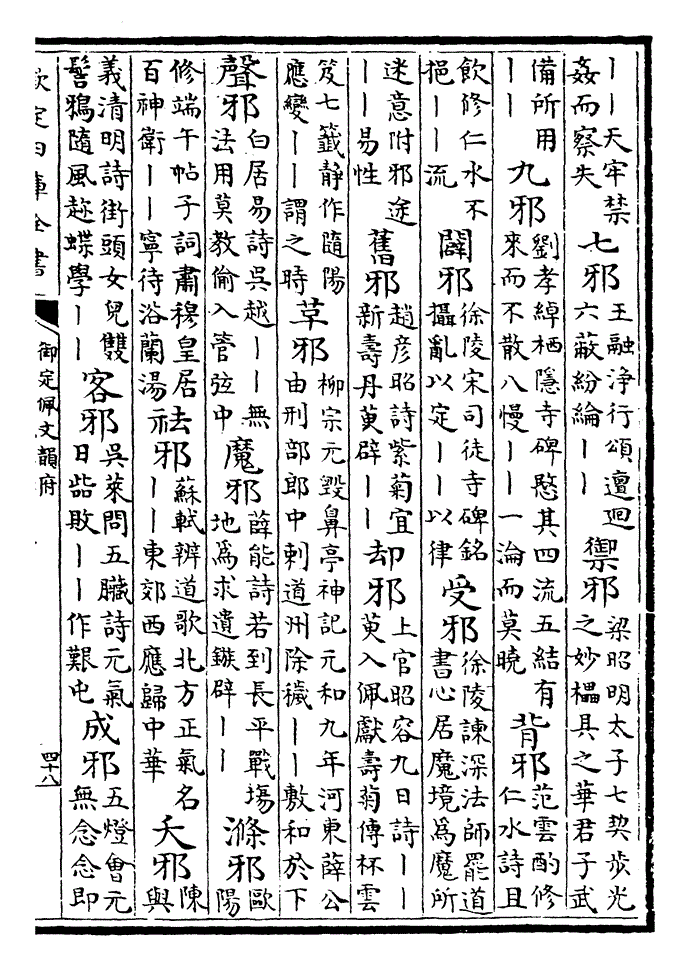 丨丨天牢禁姦而察失七邪王融淨行頌邅迴六蔽紛綸丨丨禦邪梁昭明太子七契步光之妙櫑具之華君子武
備所用丨丨九邪劉孝綽栖隱寺碑愍其四流五結有來而不散八慢丨丨一淪而莫曉背邪范雲酌修仁水詩且
飲修仁水不挹丨丨流闢邪徐陵宋司徒寺碑銘攝亂以定丨丨以律受邪徐陵諫深法師罷道書心居魔境為魔所
迷意附邪途丨丨易性舊邪趙彦昭詩紫菊宜新壽丹萸辟丨丨却邪上官昭容九日詩丨丨萸入佩獻壽菊傳杯雲
笈七籤静作隨陽應變丨丨謂之時草邪柳宗元毁鼻亭神記元和九年河東薛公由刑部郎中刺道州除穢丨丨敷和於下
聲邪白居易詩吳越丨丨無法用莫教偷入管弦中魔邪薛能詩若到長平戰塲地為求遺鏃辟丨丨滌邪歐陽
修端午帖子詞肅穆皇居百神衛丨丨寧待浴蘭湯祛邪蘇軾辨道歌北方正氣名丨丨東郊西應歸中華夭邪陳與
義清明詩街頭女兒雙髻鴉隨風趂蝶學丨丨客邪吳萊問五臟詩元氣日呰敗丨丨作艱屯成邪五燈會元無念念即
欽定四庫全書
御定佩文韻府
四十八